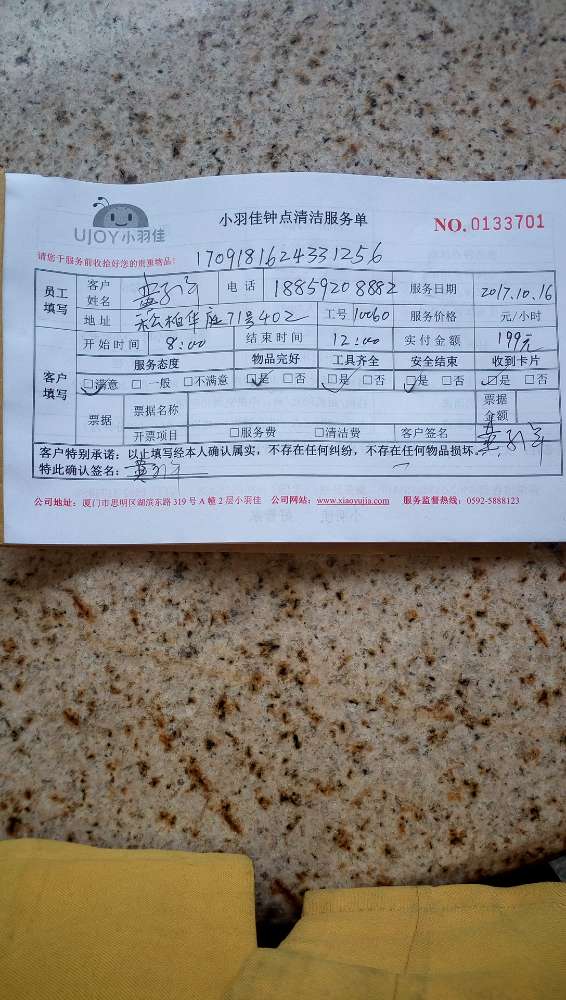 UJOY小羽佳
小羽佳钟点清洁服务单
NO. 0133701
请您于服务前收拾好您的贵重物品!
1709181624331256
员工填写 客户姓名 电话 18859208882 服务日期 2017.10.16
地址 松柏华庭71号402 工号 10060 服务价格 元/小时
客户填写 开始时间 8:00 结束时间 12:00 实付金额 199元
服务态度 物品完好 工具齐全 安全结束 收到卡片
□满意 □一般 □不满意 □是 □否 □是 □否 □是 □否 □是 □否
票据 票据名称 票据金额
开票项目 □服务费 □清洁费 客户签名
客户特别承诺:以止填写经本人确认属实,不存在任何纠纷,不存在任何物品损坏.
特此确认签名:
公司地址:厦门市思明区湖滨东路319号A幢2层小羽佳 公司网站:www.xiaoyujia.com 服务监督热线:0592-5888123